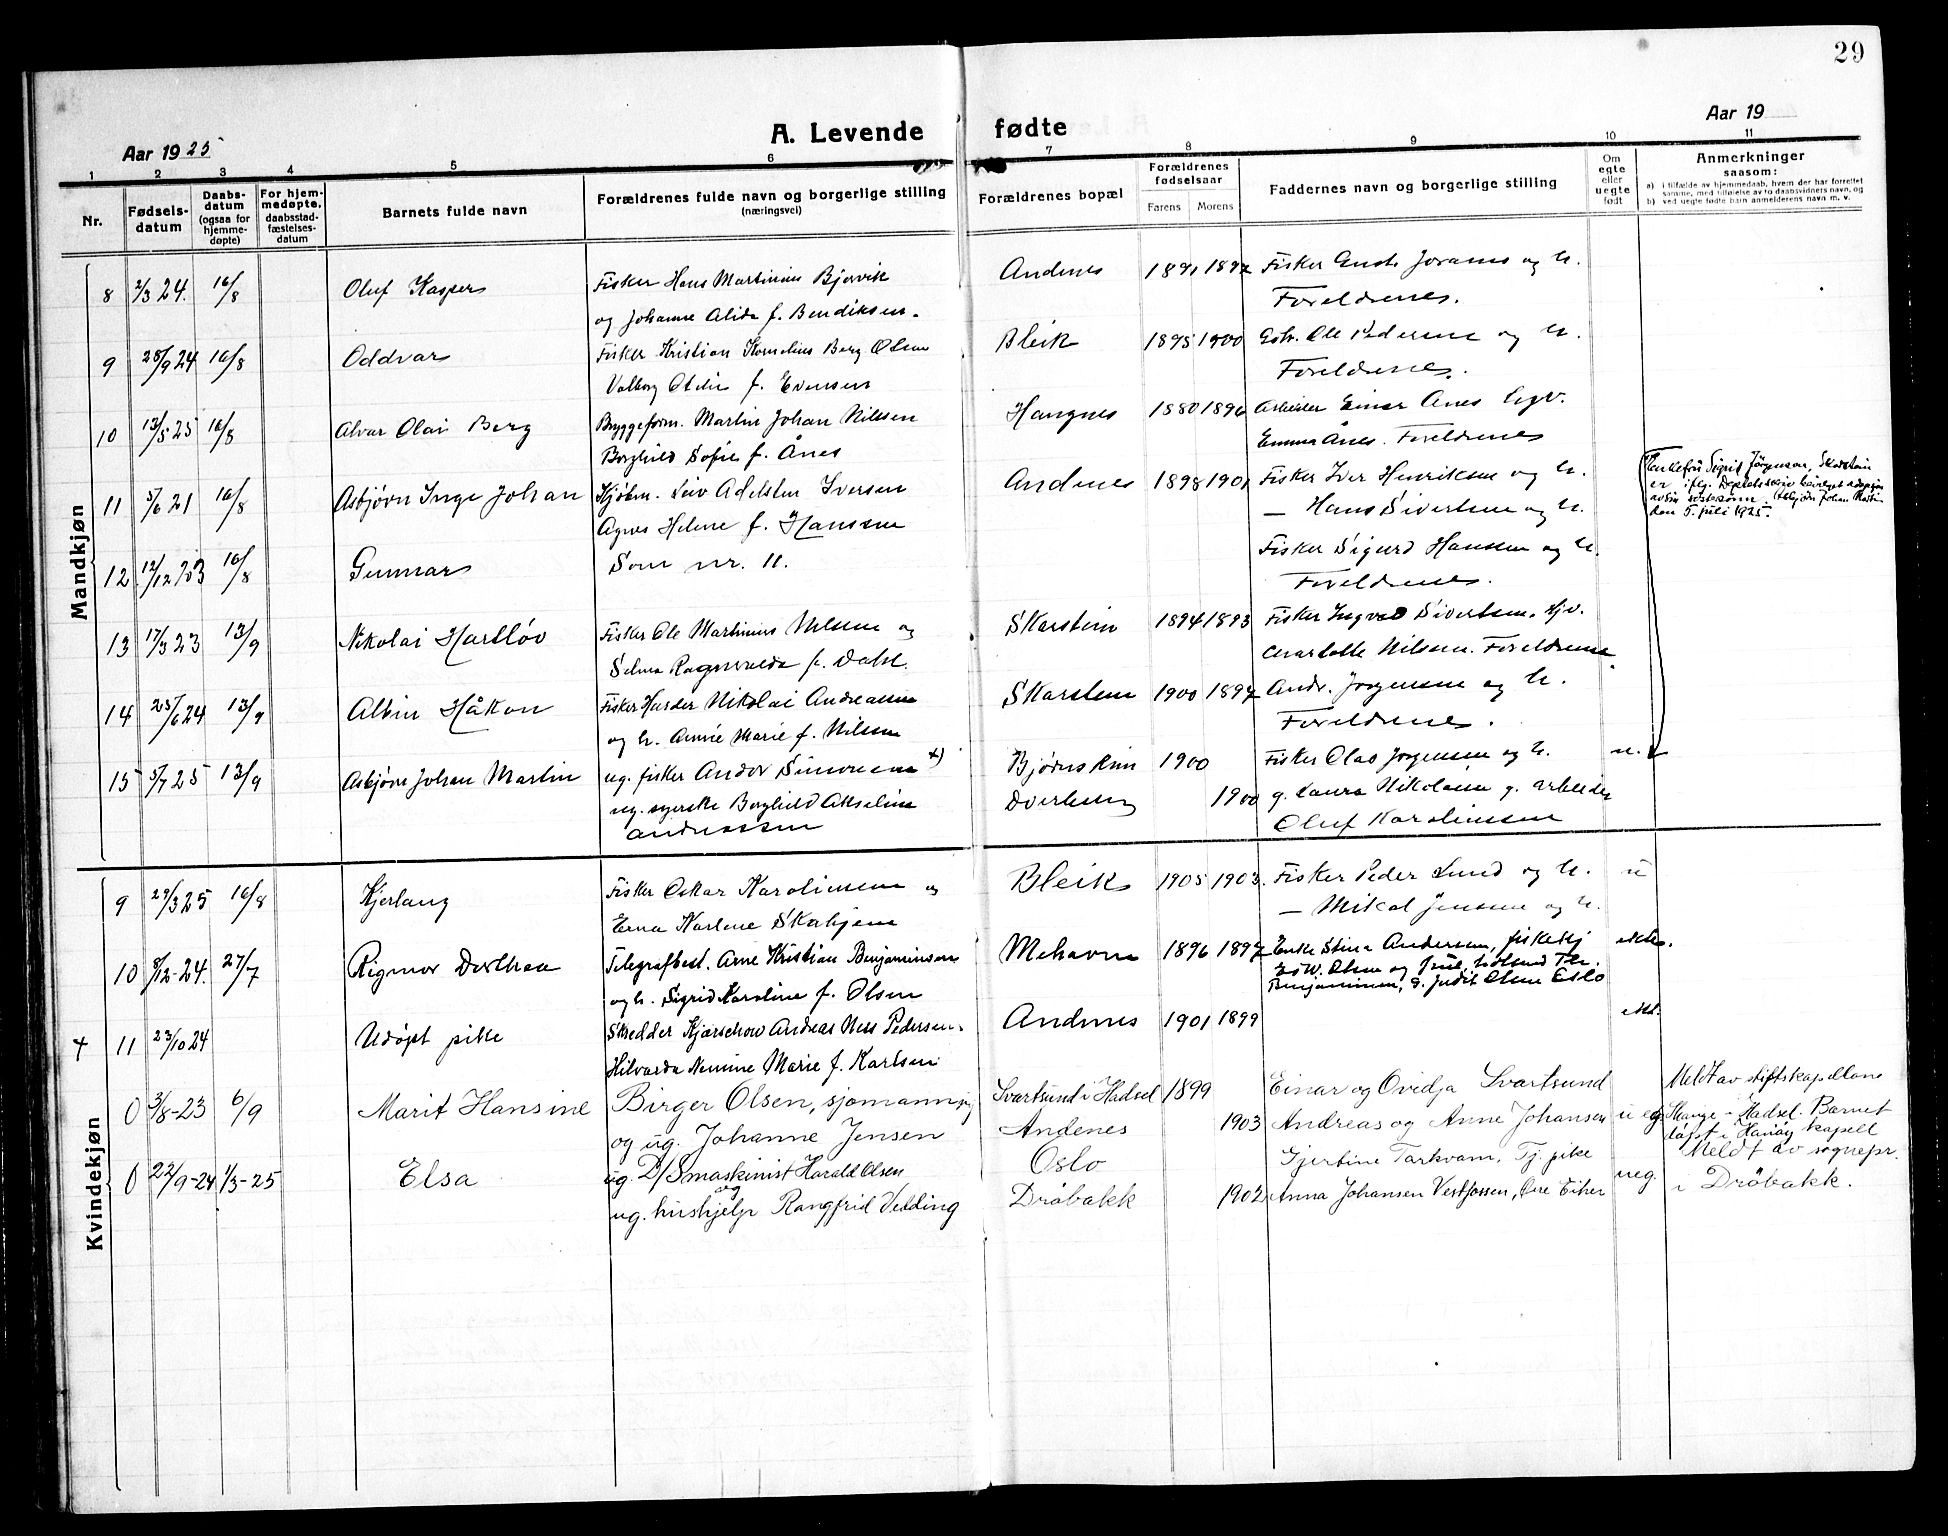 29
A. Levende fødte
Aar 1925
Aar 19
1 2 3 4 5 6 7 8 9 10 11
Nr.
Fødsels-datum
Daabs-datum (ogsaa for hjemme-døpte)
For hjem-medøpte. daabsstad-fæstelses-datum
Barnets fulde navn
Forældrenes fulde navn og borgerlige stilling (næringsvei)
Forældrenes bopæl
Forældrenes fødselsaar
Farens Morens
Faddernes navn og borgerlige stilling
Om egte eller uegte født
Anmerkninger saasom:
a) i tilfælde av hjemmedaab, hvem der har forrettet samme, med tilføielse av to daabsvidners navn, og
b) ved uegte fødte barn anmelderens navn m. v.
Mandkjøn
8 2/3 24. 16/8 Oluf Kasper Fisker Hans Martinius Bjørvik Andenes 1891 1892 Fisker og h.
og Johanne Alida f. Bendiksen. Foreldrenes.
9 28/9 24 16/8 Oddvar Fisker Kristian Kornelius Berg Olsen Bleik 1895 1900 Ole Pedersen og h.
Valborg Otelie f. Evensen Foreldrenes.
10 13/5 25 16/8 Alvar Olai Berg Byggeform. Martin Johan Nilsen Haugnes 1880 1896 Arbeider Einar Ånes
Borghild Sofie f. Ånes Emma Ånes. Foreldrenes
11 5/6 21 16/8 Asbjørn Inge Johan Kjøbm. Leiv Adelsten Iversen Andenes 1898 1901 Fisker Iver Henriksen og h.
Agnes Helene f. Hanssen — Hans Sivertsen og h.
Enkefru Sigrid Jørgensen, Skarstein
er iflg. bevilget adopsjon
av sin søstersønn Asbjørn Johan Martin
den 5. juli 1925.
12 12/12 23 16/8 Gunnar Som nr. 11. Fisker Sigurd Hansen og h.
Foreldrenes.
13 17/3 23 13/9 Nikolai Hartløv Fisker Ole Martinius Nilsen og Skarstein 1894 1893 Fisker Ingvald Sivertsen.
Selma Ragnvalda f. Dahl. Charlotte Nilsen. Foreldrene.
14 25/6 24 13/9 Albin Håkon Fisker Harder Nikolai Andreassen Skarstein 1900 1897 Andr. Jørgensen og h.
og h. Annie Marie f. Nilsen Foreldrene.
15 5/7 25 13/9 Asbjørn Johan Martin ug. fisker Andor Simonsen x) Bjørnskinn 1900 Fisker Olav Jørgensen og h. u.
ug. syerske Borghild Akseline Dverberg 1900 g. Laura Nikolaisen g. arbeider
Andreassen Oluf Karolinssen
Kvindekjøn
9 29/3 25 16/8 Hjerlaug Fisker Oskar Karolinssen og Bleik 1905 1903. Fisker Peder Lund og h. u
Erna Karlene Skahjem — Mikal Jensen og h.
10 8/12-24. 27/7 Rigmor Dorthea Telegrafbest. Arne Kristian Benjaminsen Mehavn 1896 1897 Enke Stina Andersen, fiskehj ekte.
og h. Sigrid Karoline f. Olsen Edw. Olsen og
Benjaminsen, g. Judit Olsen Oslo
+ 11 23/10 24 Udøpt pike Skredder Kjerschow Andreas Ness Pedersen. Andenes 1901 1899 ekt.
Hilvarda Nomine Marie f. Karlsen
0 3/8-23 6/9 Marit Hansine Birger Olsen, sjømann Svartsund i Hadsel 1899 Einar og Ovidja Svartsund Meldt av stiftskapellan
og ug. Johanne Jensen Andenes 1903 Andreas og Anne Johansen u eg. Skauge - Hadsel. Barnet
døpt i kapell
0 22/9-24 1/3-25 Elsa ug. D/S maskinist Harald Olsen Oslo Gjertine Tarkvam. Tj. pike Meldt av sognepr.
og
ug. hushjelp Rangfrid Vedding Drøbakk 1902 Anna Johansen Vestfossen, Øvre Eiker ueg. i Drøbakk.